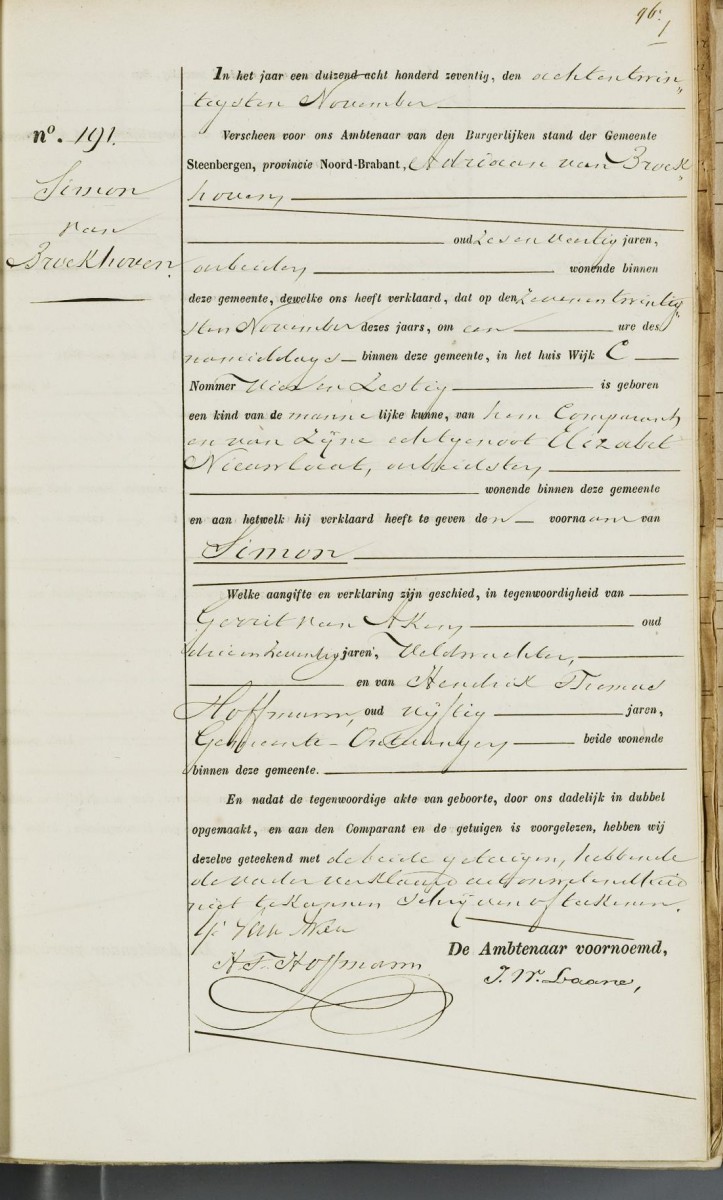 96.
1
nº. 191.
Simon
van
Broekhoven.
In het jaar een duizend acht honderd zeventig, den achtentwin„
tigsten November
Verscheen voor ons Ambtenaar van den Burgerlijken stand der Gemeente
Steenbergen, provincie Noord-Brabant, Adriaan van Broek„
hoven,
oud zes en veertig jaren,
arbeider, wonende binnen
deze gemeente, dewelke ons heeft verklaard, dat op den zevenentwintig„
sten November dezes jaars, om een ure des
namiddags binnen deze gemeente, in het huis Wijk C
Nommer vier en zestig is geboren
een kind van de mannelijke kunne, van hem Comparant,
en van zijne echtgenoot Elizabet
Nieuwlaat, arbeidster,
wonende binnen deze gemeente
en aan hetwelk hij verklaard heeft te geven den voornaam van
Simon
Welke aangifte en verklaring zijn geschied, in tegenwoordigheid van
Gerrit van Aken, oud
drieenzeventig jaren, Veldwachter,
en van Hendrik Thomas
Hoffmann, oud vijftig jaren,
Gemeente-Ontvanger, beide wonende
binnen deze gemeente.
En nadat de tegenwoordige akte van geboorte, door ons dadelijk in dubbel
opgemaakt, en aan den Comparant en de getuigen is voorgelezen, hebben wij
dezelve geteekend met de beide getuigen, hebbende
de vader verklaard uit onwetendheid
niet te kunnen schrijven of teekenen.
Van Aken
H. T. Hoffmann.
De Ambtenaar voornoemd,
J. W. Laane,